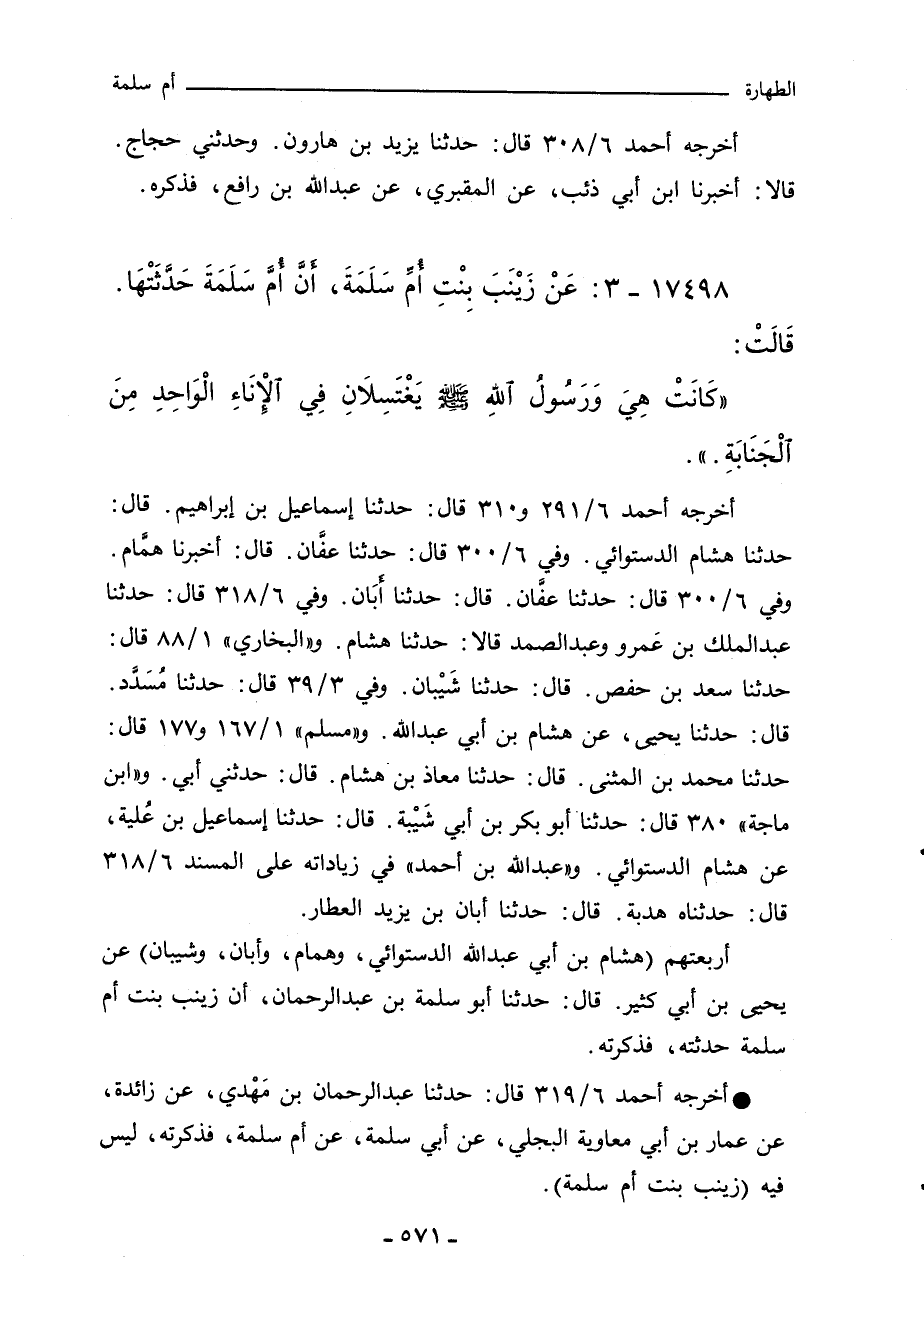 الطهارة أم سلمة
أخرجه أحمد ٣٠٨/٦ قال: حدثنا يزيد بن هارون. وحدثني حجاج.
قالا: أخبرنا ابن أبي ذئب، عن المقبري، عن عبدالله بن رافع، فذكره.
١٧٤٩٨ - ٣: عَنْ زَيْنَبَ بِنْتِ أُمِّ سَلَمَةَ، أَنَّ أُمَّ سَلَمَةَ حَدَّثَتْهَا.
قَالَتْ:
«كَانَتْ هِيَ وَرَسُولُ ٱللهِ ﷺ يَغْتَسِلَانِ فِي ٱلْإِنَاءِ الْوَاحِدِ مِنَ
ٱلْجَنَابَةِ.».
أخرجه أحمد ٢٩١/٦ و٣١٠ قال: حدثنا إسماعيل بن إبراهيم. قال:
حدثنا هشام الدستوائي. وفي ٣٠٠/٦ قال: حدثنا عفَّان. قال: أخبرنا همَّام.
وفي ٣٠٠/٦ قال: حدثنا عفَّان. قال: حدثنا أَبَان. وفي ٣١٨/٦ قال: حدثنا
عبدالملك بن عَمرو وعبدالصمد قالا: حدثنا هشام. و«البخاري» ٨٨/١ قال:
حدثنا سعد بن حفص. قال: حدثنا شَيْبان. وفي ٣٩/٣ قال: حدثنا مُسَدَّد.
قال: حدثنا يحيى، عن هشام بن أبي عبدالله. و«مسلم» ١٦٧/١ و١٧٧ قال:
حدثنا محمد بن المثنى. قال: حدثنا معاذ بن هشام. قال: حدثني أبي. و«ابن
ماجة» ٣٨٠ قال: حدثنا أبو بكر بن أبي شَيْبة. قال: حدثنا إسماعيل بن عُلية،
عن هشام الدستوائي. و«عبدالله بن أحمد» في زياداته على المسند ٣١٨/٦
قال: حدثناه هدبة. قال: حدثنا أبان بن يزيد العطار.
أربعتهم (هشام بن أبي عبدالله الدستوائي، وهمام، وأبان، وشيبان) عن
يحيى بن أبي كثير. قال: حدثنا أبو سلمة بن عبدالرحمان، أن زينب بنت أم
سلمة حدثته، فذكرته.
● أخرجه أحمد ٣١٩/٦ قال: حدثنا عبدالرحمان بن مَهْدي، عن زائدة،
عن عمار بن أبي معاوية البجلي، عن أبي سلمة، عن أم سلمة، فذكرته، ليس
فيه (زينب بنت أم سلمة).
- ٥٧١ -